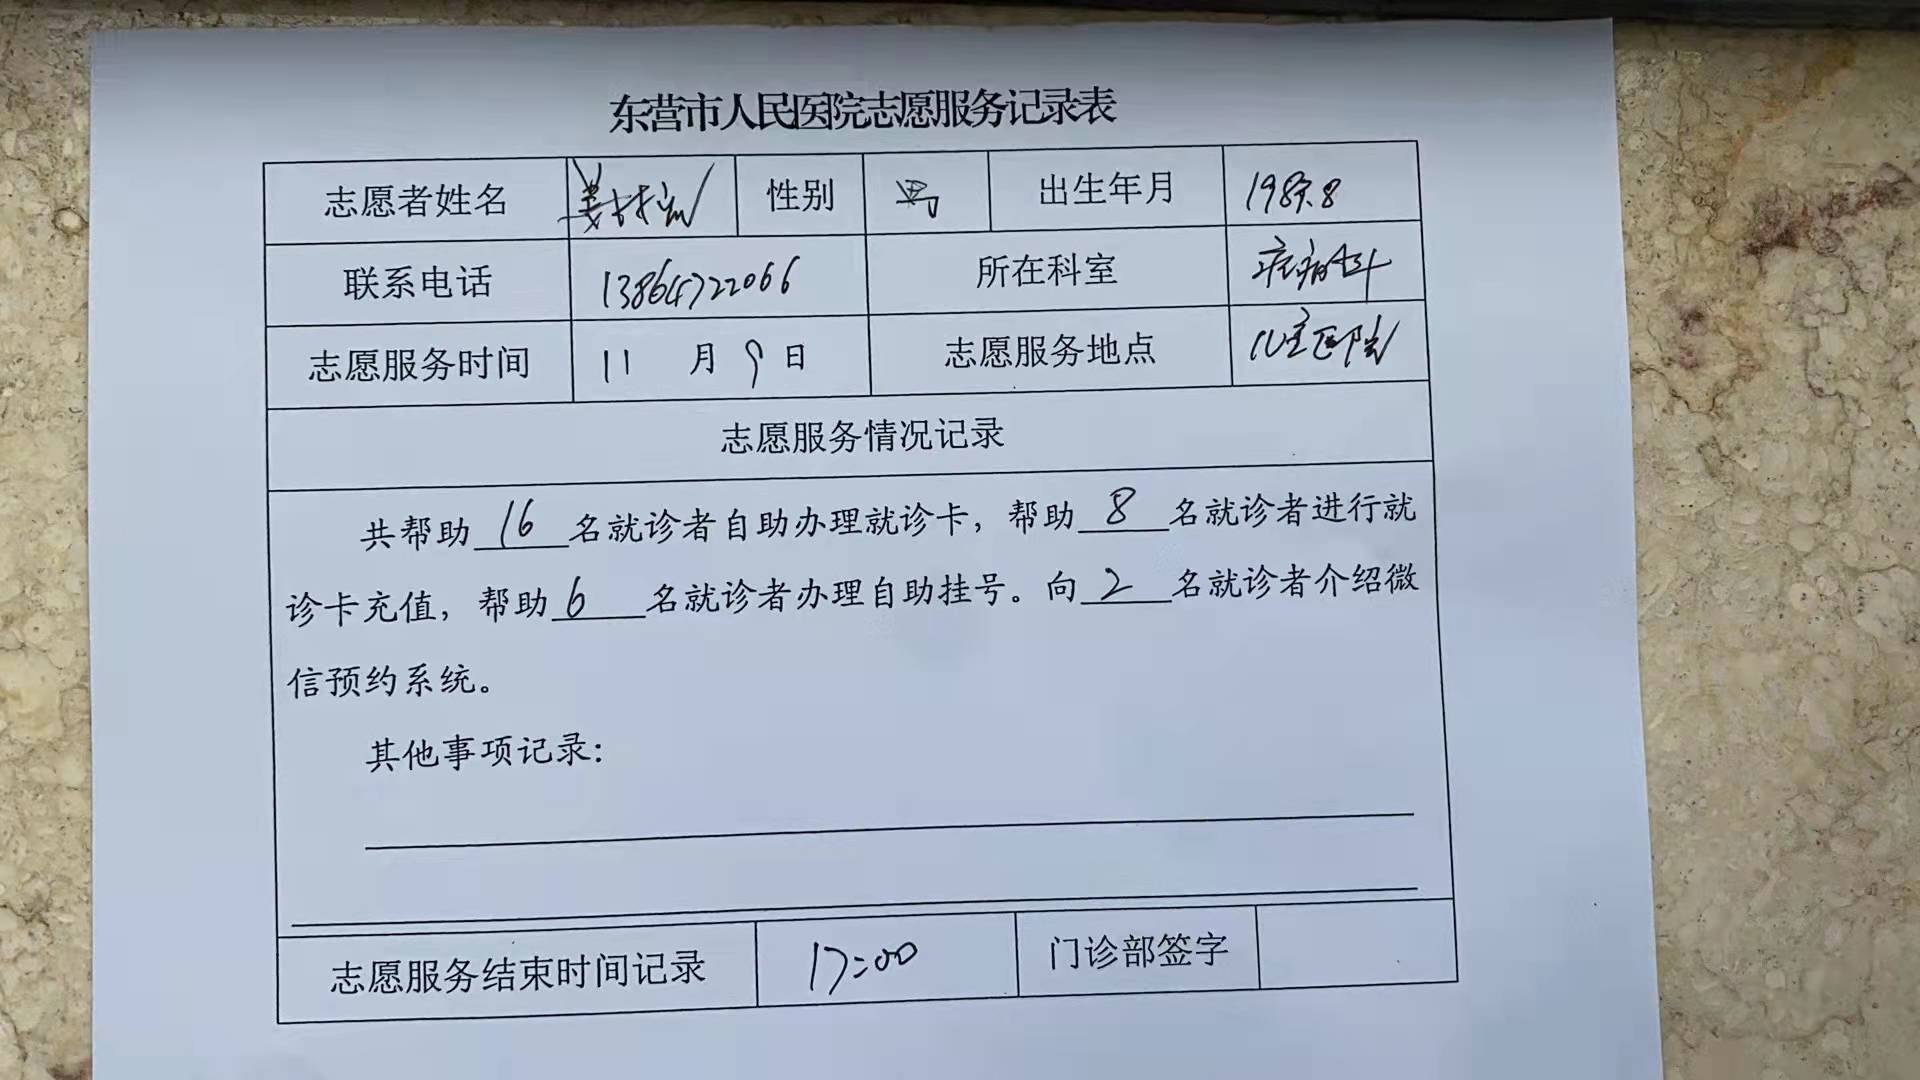 东营市人民医院志愿服务记录表
志愿者姓名 姜 性别 男 出生年月 198.8
联系电话 13864722066 所在科室 疼痛科
志愿服务时间 11 月 9 日 志愿服务地点 医院
志愿服务情况记录
共帮助 16 名就诊者自助办理就诊卡，帮助 8 名就诊者进行就
诊卡充值，帮助 6 名就诊者办理自助挂号。向 2 名就诊者介绍微
信预约系统。
其他事项记录：
志愿服务结束时间记录 17:00 门诊部签字